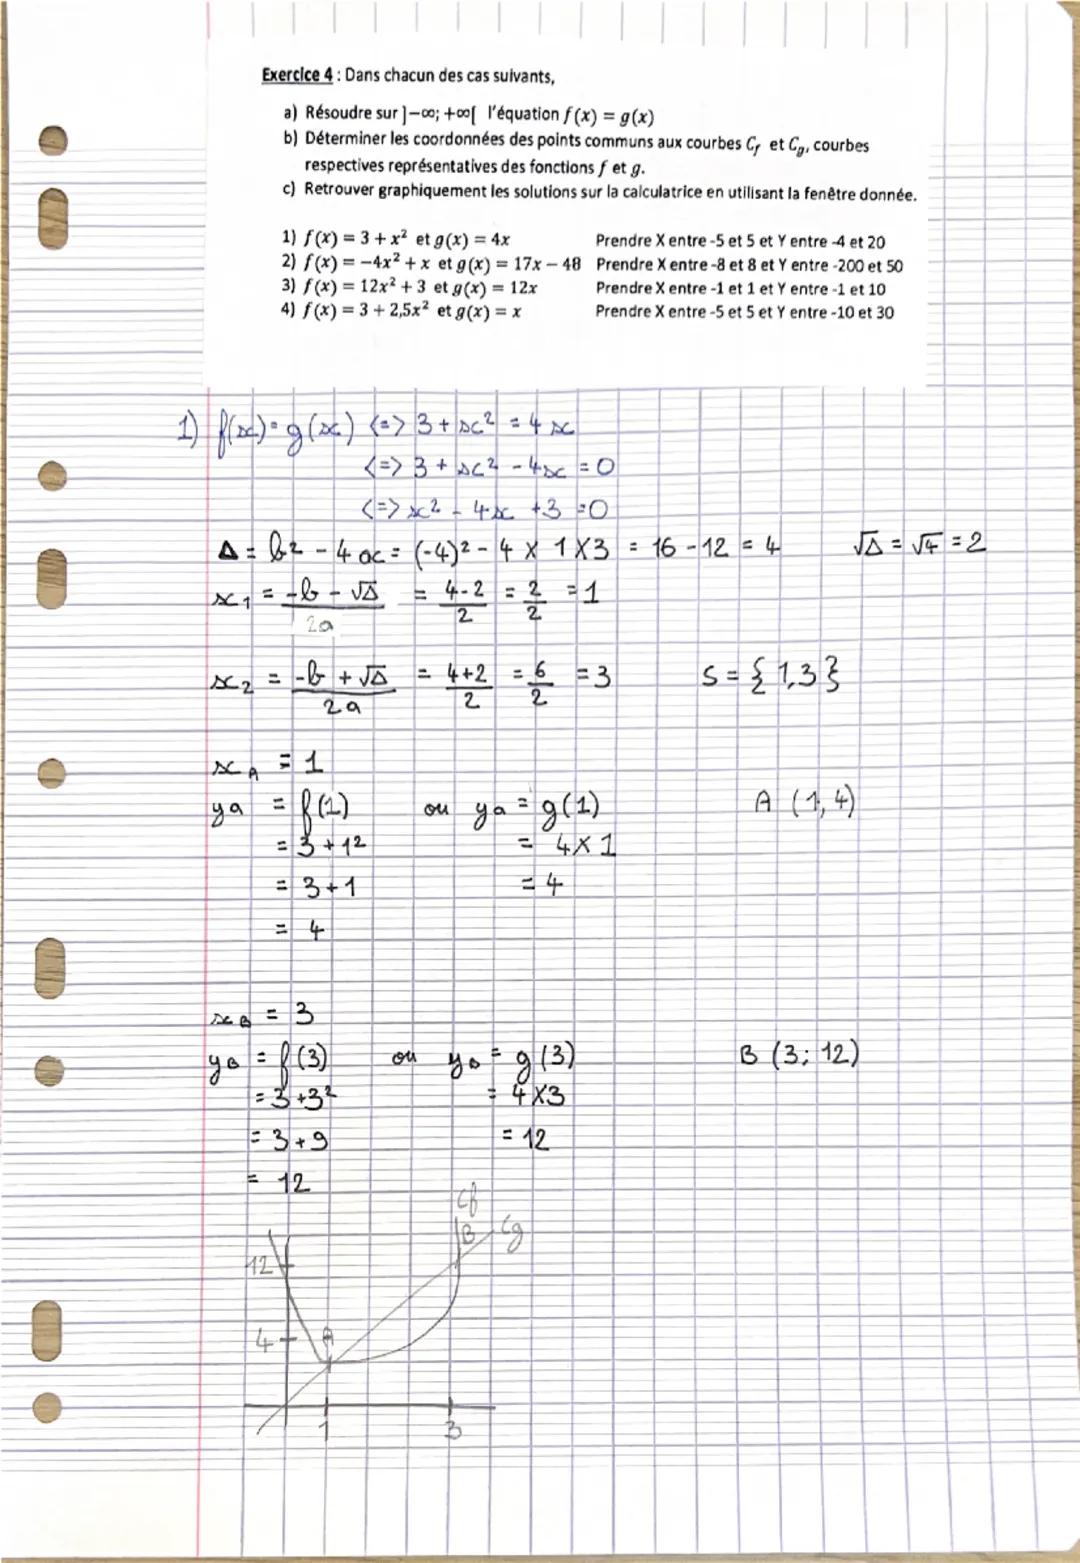 Exercice 4 : Dans chacun des cas suivants,
a) Résoudre sur ]−∞; +∞[ l'équation f(x) = g(x)
b) Déterminer les coordonnées des points communs aux courbes Cf et Cg, courbes
respectives représentatives des fonctions f et g.
c) Retrouver graphiquement les solutions sur la calculatrice en utilisant la fenêtre donnée.
1) f(x) = 3 + x² et g(x) = 4x Prendre X entre -5 et 5 et Y entre -4 et 20
2) f(x) = −4x² + x et g(x) = 17x − 48 Prendre X entre -8 et 8 et Y entre -200 et 50
3) f(x) = 12x² + 3 et g(x) = 12x Prendre X entre -1 et 1 et Y entre -1 et 10
4) f(x) = 3 + 2,5x² et g(x) = x Prendre X entre -5 et 5 et Y entre -10 et 30
1) f(x) = g(x) <=> 3 + x² = 4x
<=> 3 + x² - 4x = 0
<=> x² - 4x + 3 = 0
Δ = b² - 4ac = (-4)² - 4 × 1 × 3 = 16 - 12 = 4 √Δ = √4 = 2
x₁ = (-b - √Δ)/2a = (4-2)/2 = 2/2 = 1
x₂ = (-b + √Δ)/2a = (4+2)/2 = 6/2 = 3 S = { 1,3 }
xA = 1
ya = f(1) ou ya = g(1) A (1, 4)
= 3 + 12 = 4 × 1
= 3 + 1 = 4
= 4
xB = 3
yB = f(3) ou yB = g(3) B (3; 12)
= 3 + 3² = 4×3
= 3 + 9 = 12
= 12
Cf
B Cg
12
4 A
1 3